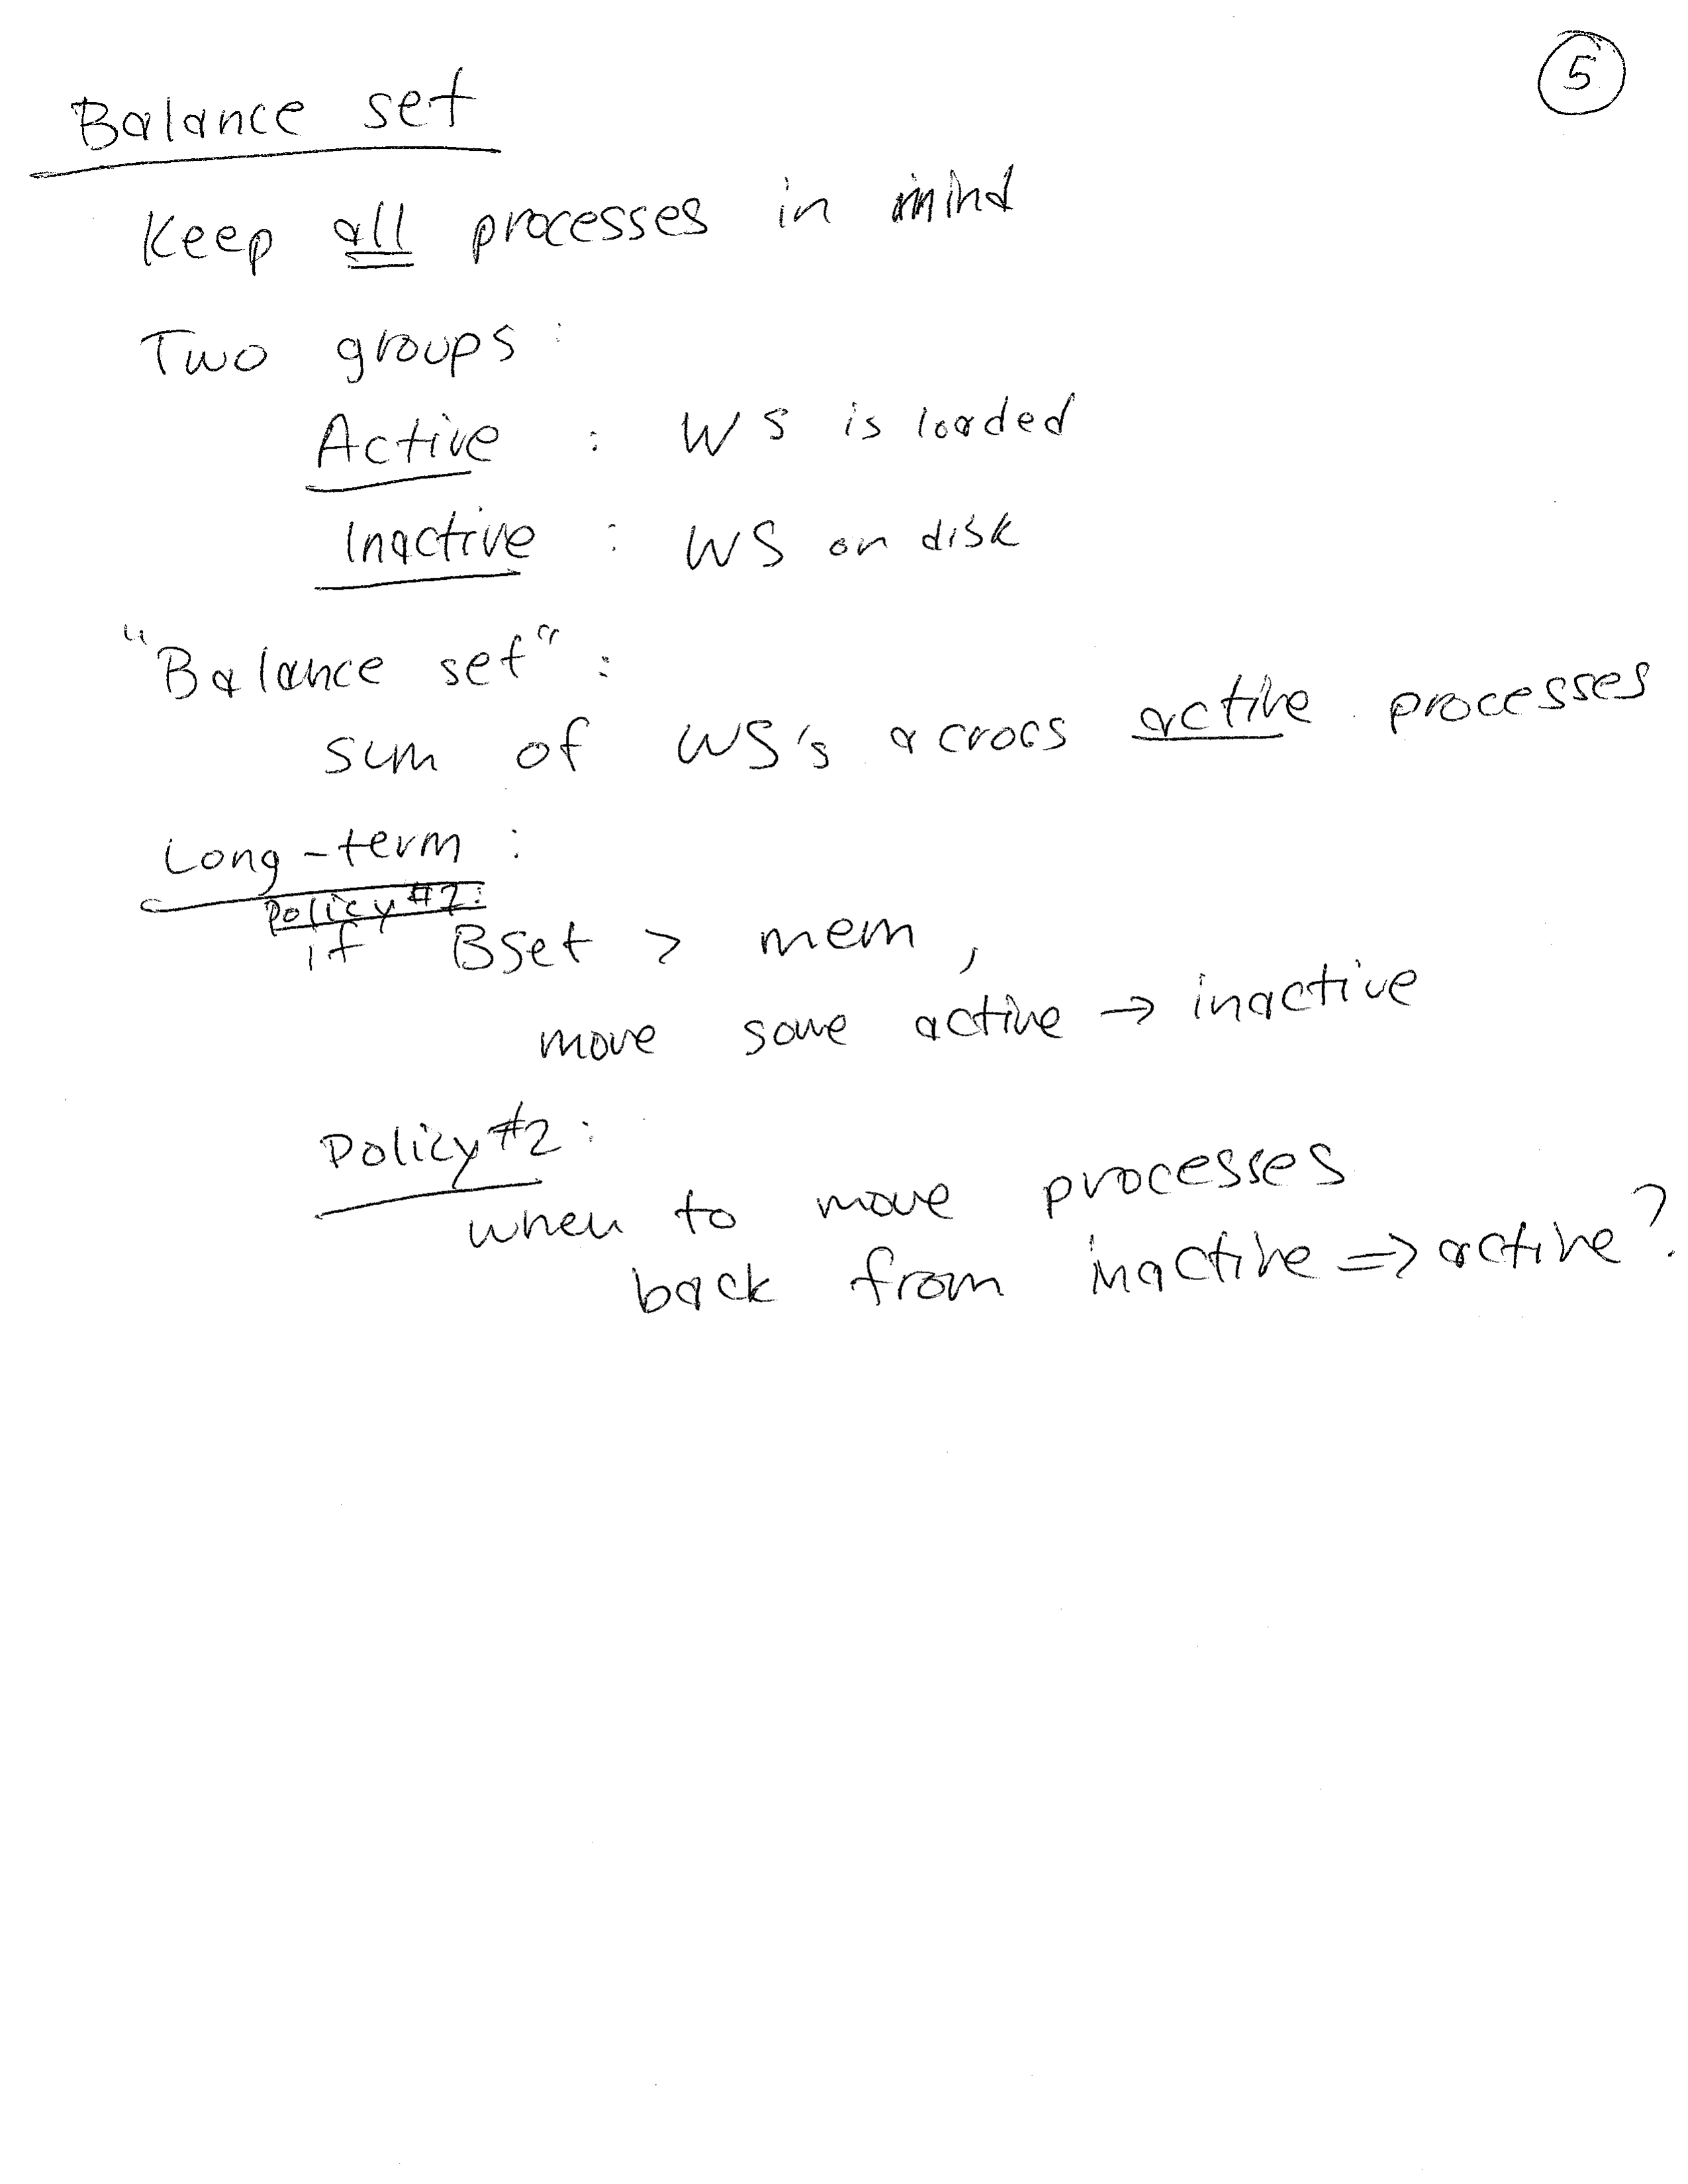 5
Balance set
Keep all processes in mind
Two groups:
Active : WS is loaded
Inactive : WS on disk
"Balance set":
sum of WS's across active processes
Long-term :
Policy #1:
if BSet > mem,
move some active → inactive
Policy #2:
when to move processes
back from inactive ⇒ active?